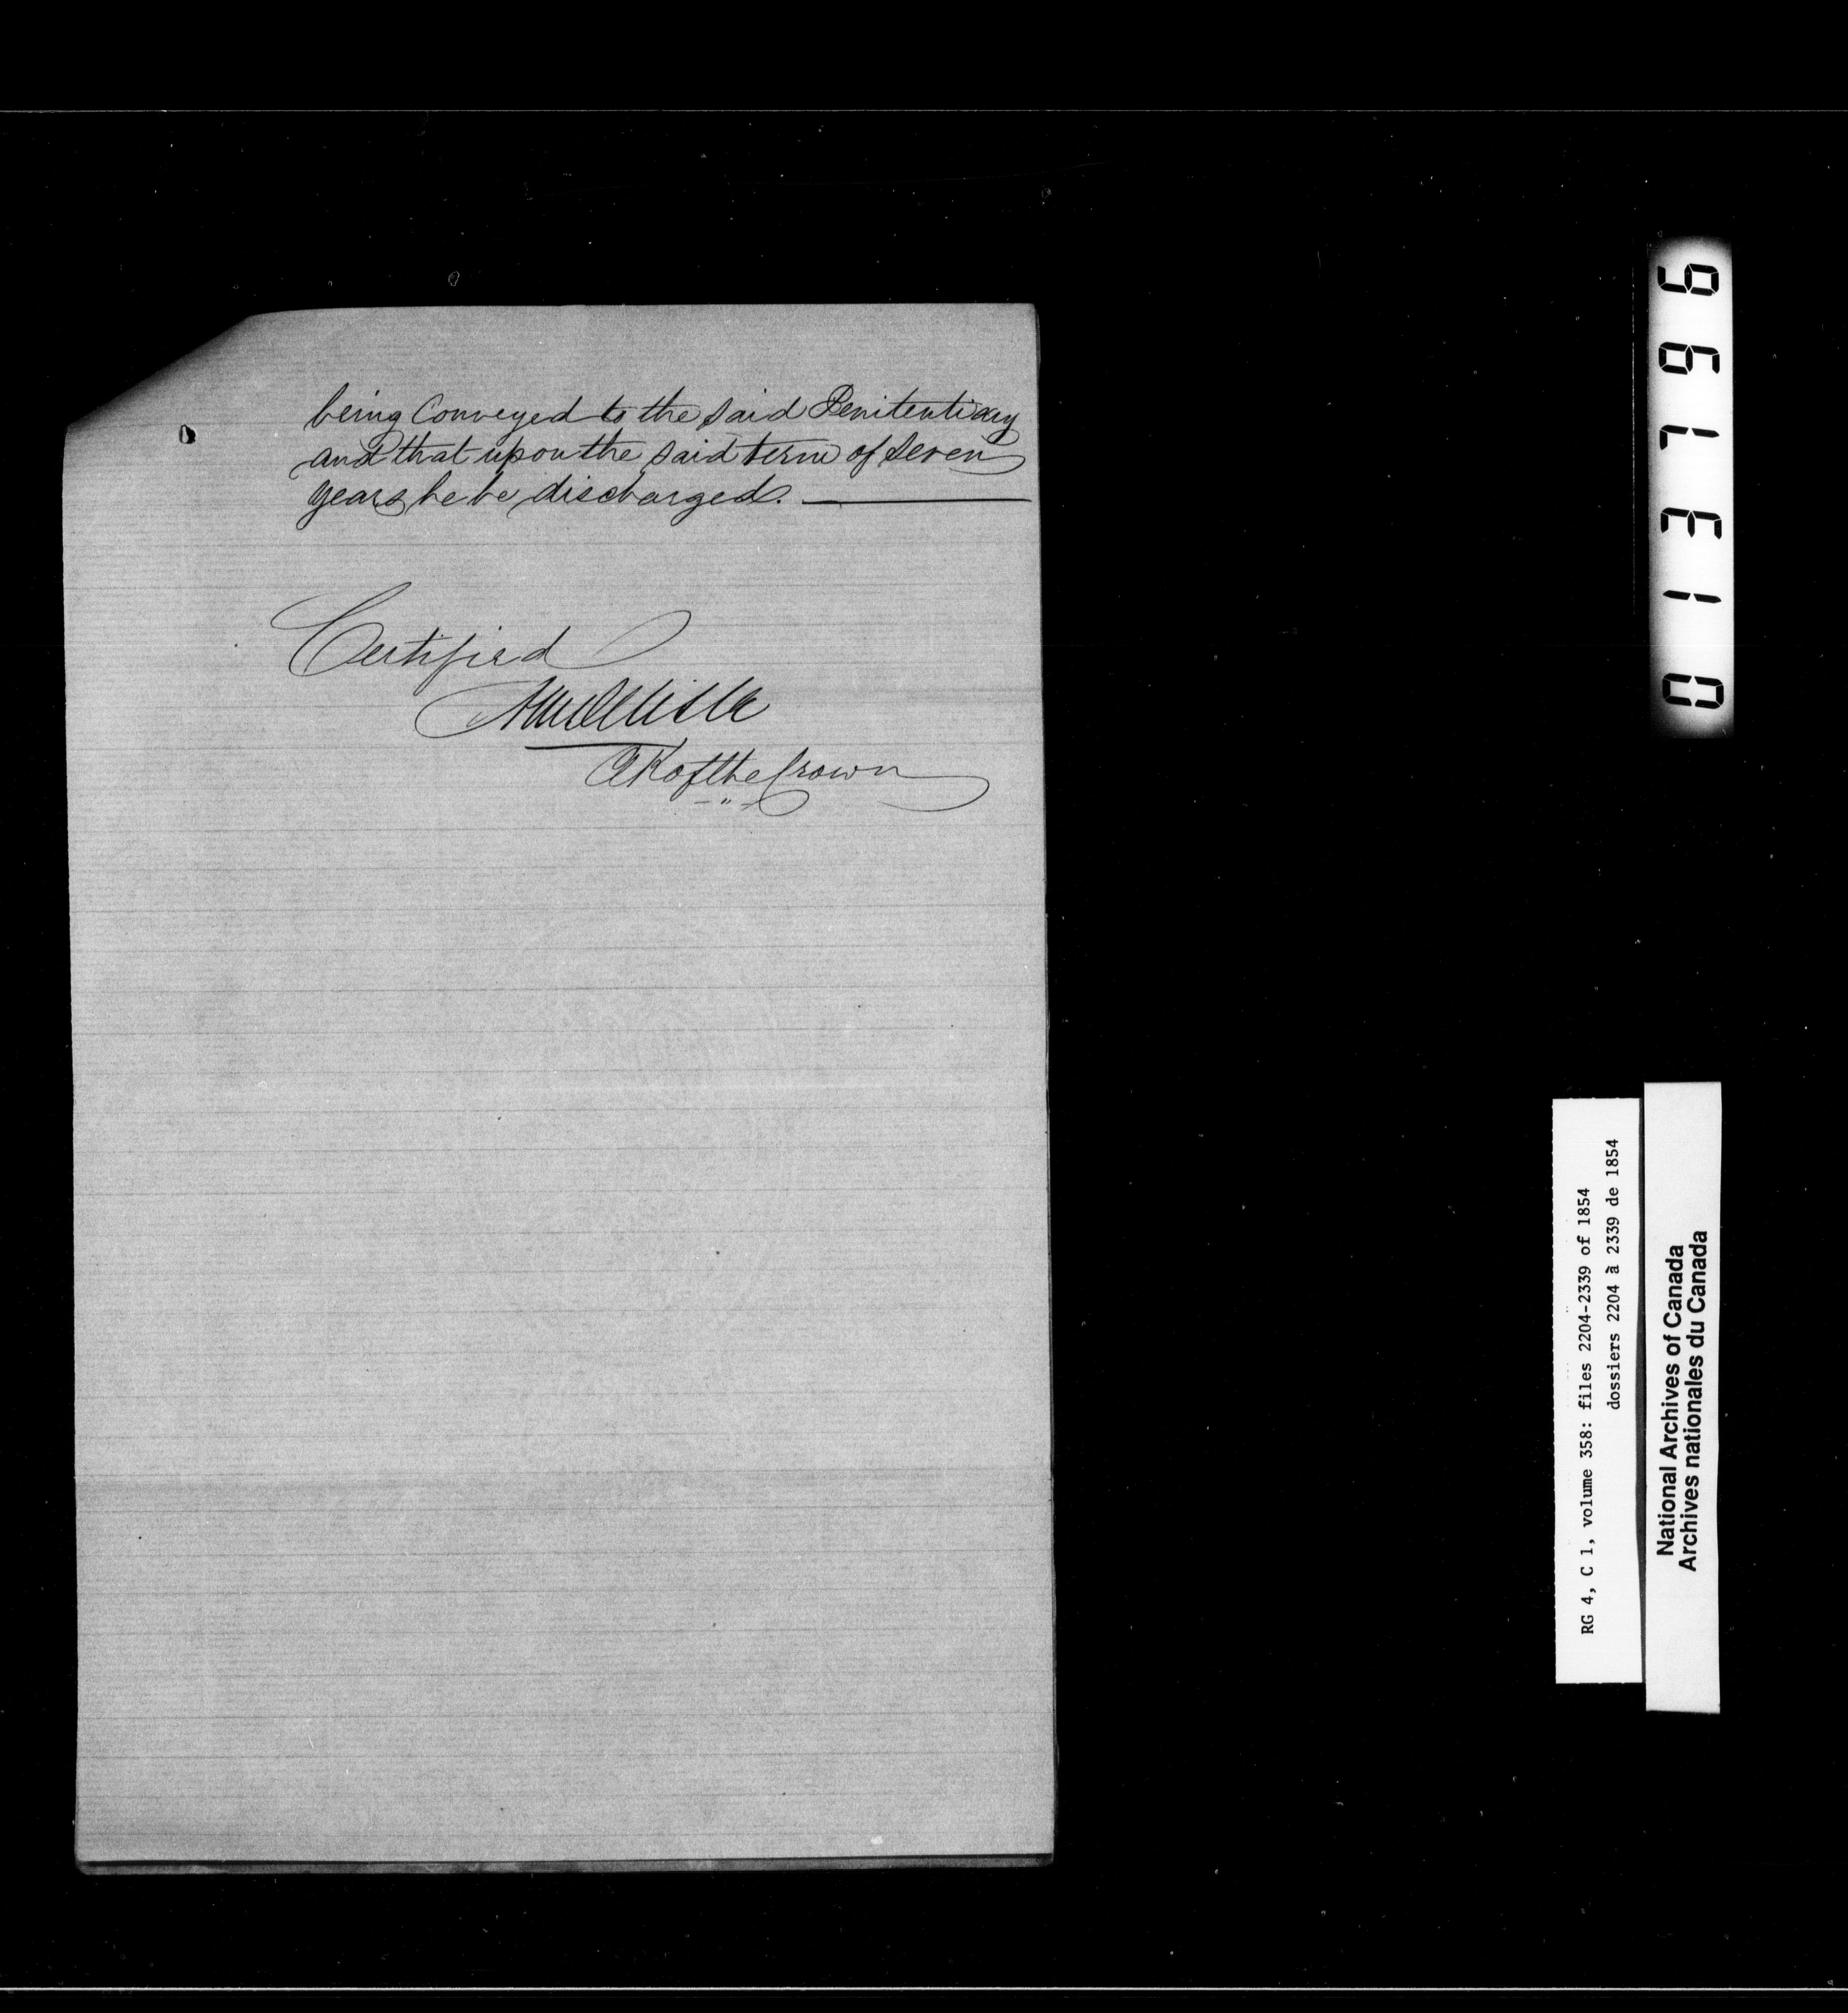 being Conveyed to the said Penitentiary
and that upon the said term of seven
years he be discharged.
Certified
AMDelisle
Clk of the Crown
013796
RG 4, C 1, volume 358: files 2204-2339 of 1854
dossiers 2204 à 2339 de 1854
National Archives of Canada
Archives nationales du Canada